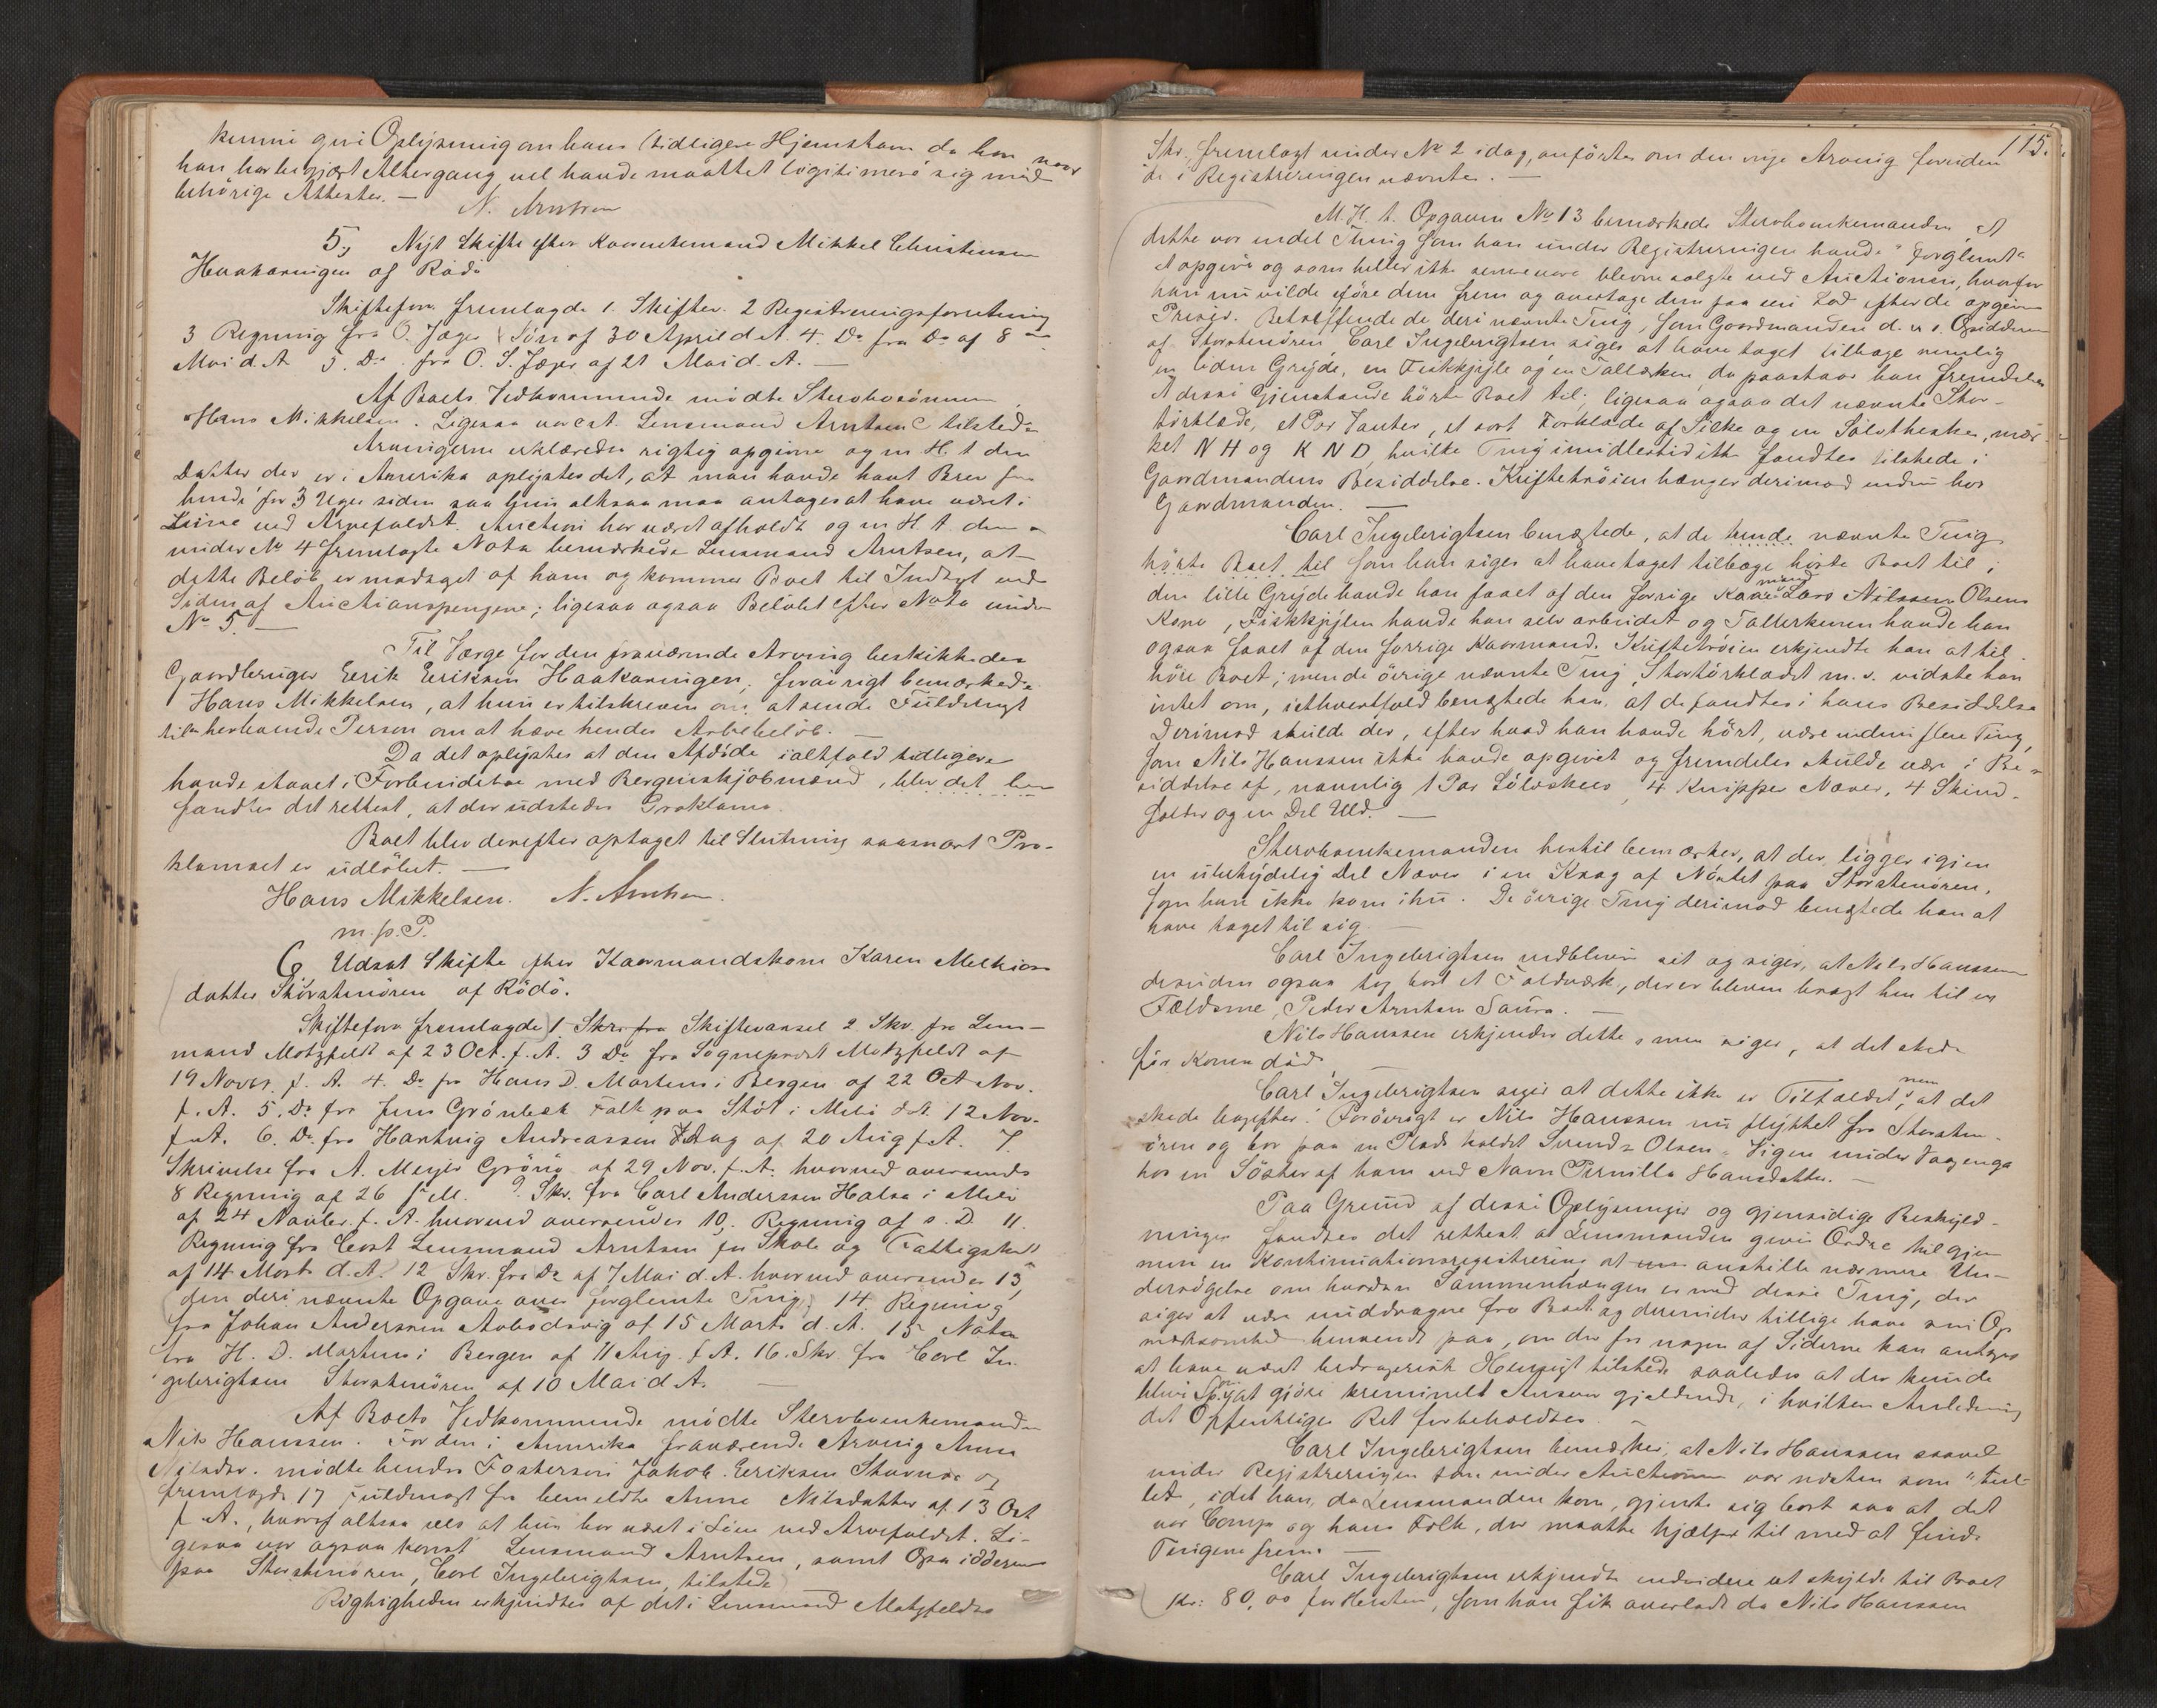 kunne give Oplysning om hans tidligere Hjemstavn da han naar
han har begjært Altergang vel havde maattet legitimere sig med
behørige Attester. —
N. Arntsen
5, Nyt Skifte efter Kaarenkemand Mikkel Christensen
Haakaringen af Rødø
Skifteforv. fremlagde 1. Skifter. 2 Registreringsforretning
3 Regning fra O. Jæger & Søn af 30 April d. A. 4. Do fra Do af 8de
Mai d. A. 5. Do fra O. S. Jæger af 21 Mai d. A. —
Af Boets Vedkommende mødte Stervbosønnen
Hans Mikkelsen. Ligesaa var cst. Lensmand Arntsen tilstede
Arvingerne erklæredes rigtig opgivne og m. H. t. den
Datter der er i Amerika oplystes det, at man havde havt Brev fra
hende for 3 Uger siden saa hun altsaa maa antages at have været i
Live ved Arvefaldet. Auction har været afholdt og m. H. t. den
under No 4 fremlagte Nota bemærkede Lensmand Arntsen, at
dette Beløb er modtaget af ham og kommer Boet til Indtægt ved
Siden af Auctionspengene; ligesaa ogsaa Beløbet efter Nota under
No 5. —
Til Værge for den fraværende Arving beskikkedes
Gaardbruger Erik Eriksen Haakaringen, forøvrigt bemærkede
Hans Mikkelsen, at hun er tilskreven om at sende Fuldmagt
til en herværende Person om at hæve hendes Arvebeløb. —
Da det oplystes at den Afdøde ialtfald tidligere
havde staaet i Forbindelse med Bergenskjøbmænd, blev det her
fandtes det rettest, at der udstedes Proklama.
Boet blev derefter optaget til Slutning saasnart Pro-
klamaet er udløbet. —
Hans Mikkelsen. N. Arntsen.
m. p. P.
6. Udsat Skifte efter Kaarmandskone Karen Melkiors
datter Storstenøren af Rødø.
Skifteforv. fremlagde 1 Skr. fra Skiftevæsel 2. Skr. fra Lens-
mand Motzfeldt af 23 Oct. f. A. 3 Do fra Sogneprest Motzfeldt af
19 Novbr. f. A. 4. Do fra Hans D. Martens i Bergen af 22 Oct Nov.
f. A. 5. Do fra Jens Grönbæk Falk paa Støt i Melø dat. 12 Nov.
f. A. 6. Do fra Hartvig Andreassen Aag af 20 Aug f. A. 7.
Skrivelse fra A. Meyer Grönø af 29 Nov. f. A. hvorved oversendes
8 Regning af 26 s. M. 9. Skr. fra Carl Andersen Halsa i Melø
af 24 Novbr. f. A. hvorved oversendes 10,. Regning af s. D. 11.
Regning fra Const Lensmand Arntsen for Skole og Fattigskat
af 14 Marts d. A. 12 Skr. fra Do af 7 Mai d. A. hvorved oversendes 13,
den deri nævnte Opgave over forglemte Ting, 14. Regning
fra Johan Andersen Aabodsvig af 15 Marts d. A. 15 Nota
fra H. D. Martens i Bergen af 11 Aug. f. A. 16. Skr fra Carl In-
gebrigtsen Storstenøren af 10 Mai d A.
Af Boets Vedkommende mødte Stervboenkemanden
Nils Hanssen. For den i Amerika fraværende Arving Anne
Nilsdtr. mødte hendes Fostersøn Jakob Eriksen og
fremlagde 17 Fuldmagt fra bemeldte Anne Nilsdatter af 13 Oct
f. A., hvoraf altsaa sees at hun har været i Live ved Arvefaldet. Li-
gesaa var ogsaa konst Lensmand Arntsen, samt Opsidderen
paa Storstenøren, Carl Ingebrigtsen, tilstede
Rigtigheden erkjendtes af det i Lensmand Motzfeldts
115.
Skr. fremlagt under No 2 idag, anførte om den nye Arving foruden
de i Registreringen nævnte. —
M. H. t. Opgaven No 13 bemærkede Stervboenkemanden, at
dette var endel Ting som han under Registreringen havde "forglemt"
at opgive og som heller ikke senere være blevne solgte ved Auctionen, hvorfor
han nu vilde føre dem frem og overtage dem paa sin Lod efter de opgivne
Priser. Betræffende de deri nævnte Ting, som Gaardmanden d. e. Opsidderen
af Storstenøren, Carl Ingebrigtsen, siges at have taget tilbage nemlig
en liden Gryde, en Fiskkjyle og en Tallerken, da paastaar han fremdeles
at dessi Gjenstande hørte Boet til; ligesaa ogsaa det nævnte Stor-
tørklæde, et Par Vanter, et sort Forklæde af Silke og en Sølvtheske, mær-
ket N H og K N D, hvilke Ting imidlertid ikke fandtes tilstede i
Gaardmandens Besiddelse. Kristtrøien hænger derimod endnu hos
Gaardmanden. —
Carl Ingebrigtsen benægtede, at de hende nævnte Ting
hørte Boet til som han siges at have taget tilbage hørte Boet til;
den lille Gryde havde han faaet af den forrige Kaarmand Lars Nilssen Olsens
Kone, Fiskkjylen havde han selv arbeidet og Tallerkenen havde han
ogsaa faaet af den forrige Kaarmand. Kristtrøien erkjendte han at til-
høre Boet; men de øvrige nævnte Ting, Stortørklædet m. v. vidste han
intet om, iethvertfald benægtede han at de fandtes i hans Besiddelse
Derimod skulde der, efter hvad han havde hørt, være endnu flere Ting,
som Nils Hanssen ikke havde opgivet og fremdeles skulde være i Be-
siddelse af, navnlig 1 Par Sølvskeer, 4 Knipper Næver, 4 Skind-
felder og en Del Uld. —
Stervboenkemanden hertil bemærker, at der ligger igjen
en ubetydelig Del Næver i en Krog af Nøstet paa Storstenøren,
som han ikke kom ihu. De øvrige Ting derimod benægtede han at
have taget til sig. —
Carl Ingebrigtsen vedbliver sit og siger, at Nils Hanssen
desuden ogsaa tog bort et Foldværk, der er bleven bragt hen til en
Peder Arntsen Saura. —
Nils Hanssen erkjender dette, men siger, at det skede
før Konens død. —
Carl Ingebrigtsen siger at dette ikke er Tilfældet, men at det
skede bagefter. Forøvrigt er Nils Hanssen nu flyttet fra Storsten-
øren og bor paa en Plads kaldet Svend Olsen Vigen under Vaagenga
hos en Søster af ham ved Navn Pernilla Hansdatter. —
Paa Grund af dessi Oplysninger og gjensidige Beskyld-
ninger fandtes det rettest at Lensmanden gives Ordre til gjen-
nem en Kontinuationsregistrering at anstille nærmere Un-
dersøgelse om hvordan Sammenhængen er med dessi Ting, der
siges at være unddragne fra Boet og derunder tillige have sin Op-
mærksomhed henvendt paa, om der fra nogen af Siderne kan antages
at have været bedragerisk Hensigt tilstede saaledes at der kunde
blive at gjøre kriminelt Ansvar gjældende, i hvilken Anledning
det Offentliges Ret forbeholdtes. —
Carl Ingebrigtsen bemærker, at Nils Hanssen saavel
under Registreringen som under Auctionen var næsten som "tul-
let", idet han, da Lensmanden kom, gjemte sig bort saa at det
var Comp og hans Folk, der maatte hjælpe til med at finde
Tingene frem. —
Carl Ingebrigtsen erkjendte endvidere at skylde til Boet
Kr: 80,00 for Hesten, som han fik overladt da Nils Hanssen